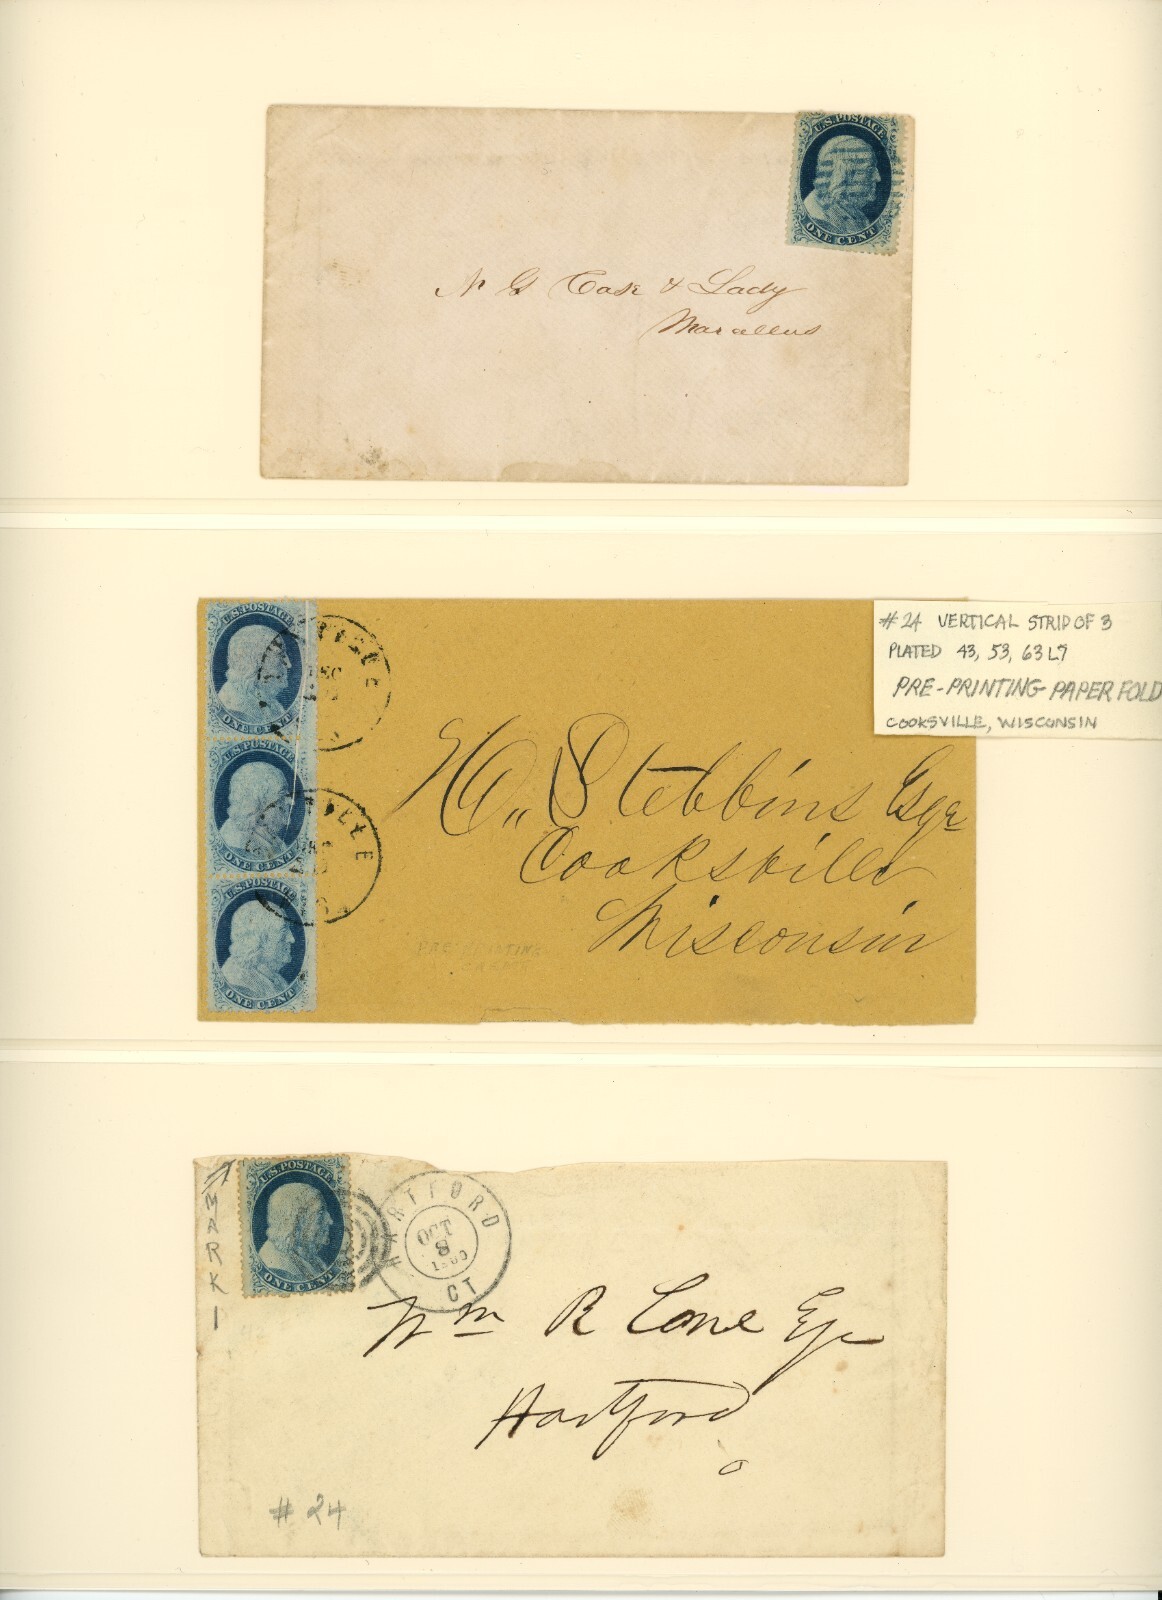 U.S. POSTAGE
ONE CENT
N G Case & Lady
Marcellus
U.S. POSTAGE
ONE CENT
U.S. POSTAGE
ONE CENT
U.S. POSTAGE
ONE CENT
#24 VERTICAL STRIP OF 3
PLATED 43, 53, 63L7
PRE-PRINTING PAPER FOLD
COOKSVILLE, WISCONSIN
H. Stebbins Esqr
Cooksville
Wisconsin
PRE-PRINTING
CREASE
MARK 1
U.S. POSTAGE
ONE CENT
HARTFORD
OCT
8
CT
Wm R Cone Esq
Hartford
#24